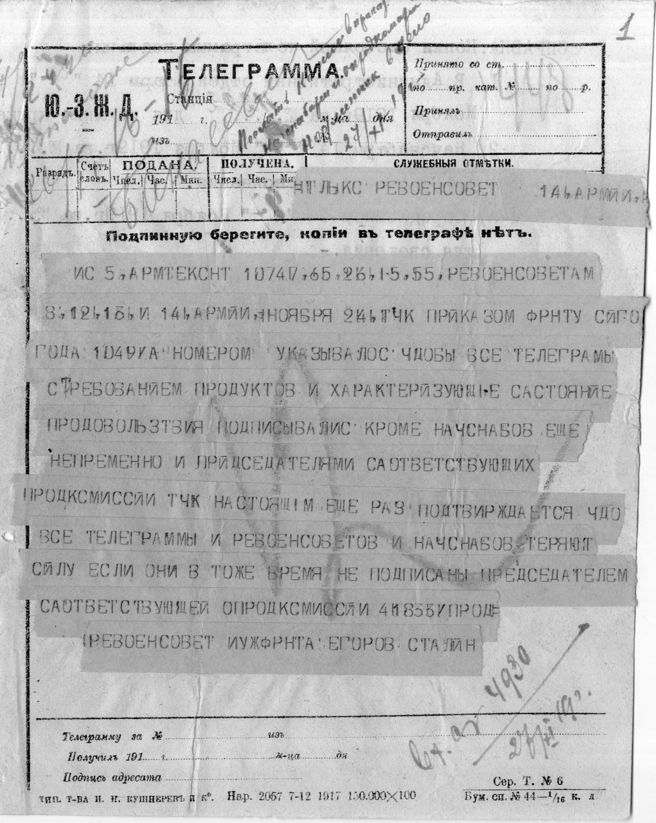 1
ТЕЛЕГРАММА.
Ю.-З. Ж. Д.
Станція
191 г. м-ца дня
изъ
27/XI 19
Принято со ст.
по пр. кат. № по р.
Принялъ
Отправилъ
Разрядъ. Счетъ словъ. ПОДАНА. ПОЛУЧЕНА. СЛУЖЕБНЫЯ ОТМѢТКИ.
Числ. Час. Мин. Числ. Час. Ми
НТЛЬКС РЕВОЕНСОВЕТ 14, АРМИИ, К
Подлинную берегите, копіи въ телеграфѣ нѣтъ.
ИС 5, АРМТЕКСНТ 10747, 65, 26, 15, 55, РЕВОЕНСОВЕТАМ
8, 12, 13, И 14, АРМИИ, НОЯБРЯ 24, ТЧК ПРИКАЗОМ ФРНТУ СЙГО
ГОДА 1049/А НОМЕРОМ УКАЗЫВАЛОС ЧДОБЫ ВСЕ ТЕЛЕГРАМЫ
СТРЕБОВАНИЕМ ПРОДУКТОВ И ХАРАКТЕРИЗУЮЩЕ САСТОЯНИЕ
ПРОДОВОЛЬЗТВИЯ ПОДПИСЫВАЛИС КРОМЕ НАЧСНАБОВ ЕЩЕ
НЕПРЕМЕННО И ПРИДСЕДАТЕЛЯМИ САОТВЕТСТВУЮЩИХ
ПРОДКСМИССИИ ТЧК НАСТОЯЩІМ ЕЩЕ РАЗ ПОДТВИРЖДАЕТСЯ ЧДО
ВСЕ ТЕЛЕГРАММЫ И РЕВОЕНСОВЕТОВ И НАЧСНАБОВ ТЕРЯЮТ
СЙЛУ ЕСЛИ ОНИ В ТОЖЕ ВРЕМЯ НЕ ПОДПИСАНЫ ПРЕДСЕДАТЕЛЕМ
САОТВЕТСТВУЮЩЕЙ ОПРОДКСМИССЙИ 41835/ПРОД
РЕВОЕНСОВЕТ ИУЖФРНТА ЕГОРОВ СТАЛЙН
Вх. 4930
27/XI 19 г.
Телеграмму за № изъ
Получилъ 191 г. м-ца дя
Подпись адресата
Сер. Т. № 6
ТИП. Т-ВА И. Н. КУШНЕРЕВЪ И К°. Нар. 2057 7-12 1917 150.000×100 Бум. сп. № 44—1/16 к. л